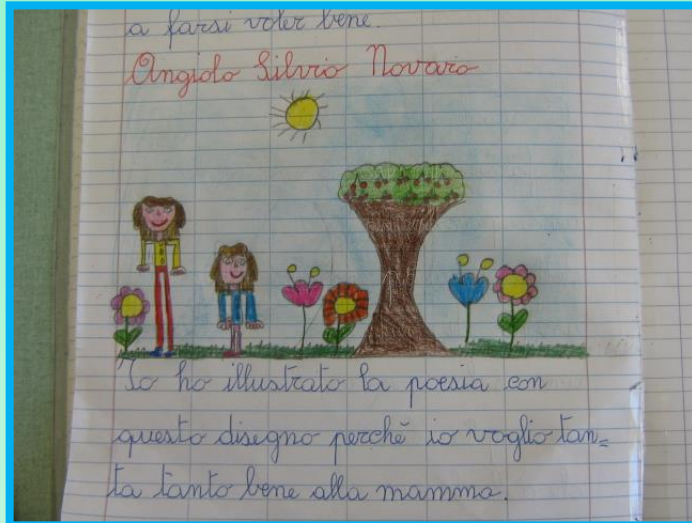 a farsi voler bene.
Angiolo Silvio Novaro
Io ho illustrato la poesia con
questo disegno perchè io voglio tan=
ta tanto bene alla mamma.